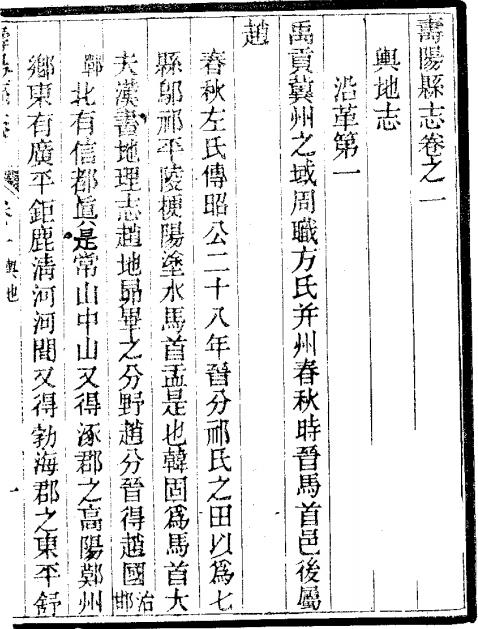 壽陽縣志卷之一
輿地志
沿革第一
禹貢冀州之域周職方氏并州春秋時晉馬首邑後屬
趙
春秋左氏傳昭公二十八年晉分祁氏之田以爲七
縣鄔祁平陵梗陽塗水馬首盂是也韓固爲馬首大
夫漢書地理志趙地昴畢之分野趙分晉得趙國治邯
鄲北有信都眞是常山中山又得涿郡之高陽鄭州
鄉東有廣平鉅鹿淸河河間又得勃海郡之東平舒
卷一 輿地 一